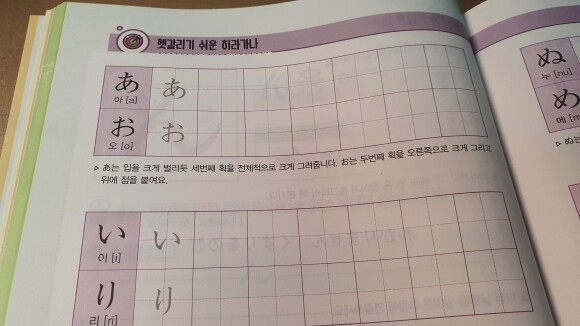 헷갈리기 쉬운 히라가나
あ あ
아 [a]
お お
오 [o]
▷ あ는 입을 크게 벌리듯 세번째 획을 전체적으로 크게 그려줍니다. お는 두번째 획을 오른쪽으로 크게 그리고
위에 점을 붙여요.
い い
이 [i]
り り
리 [ri]
ぬ
누 [nu]
め
메
▷ ぬ는